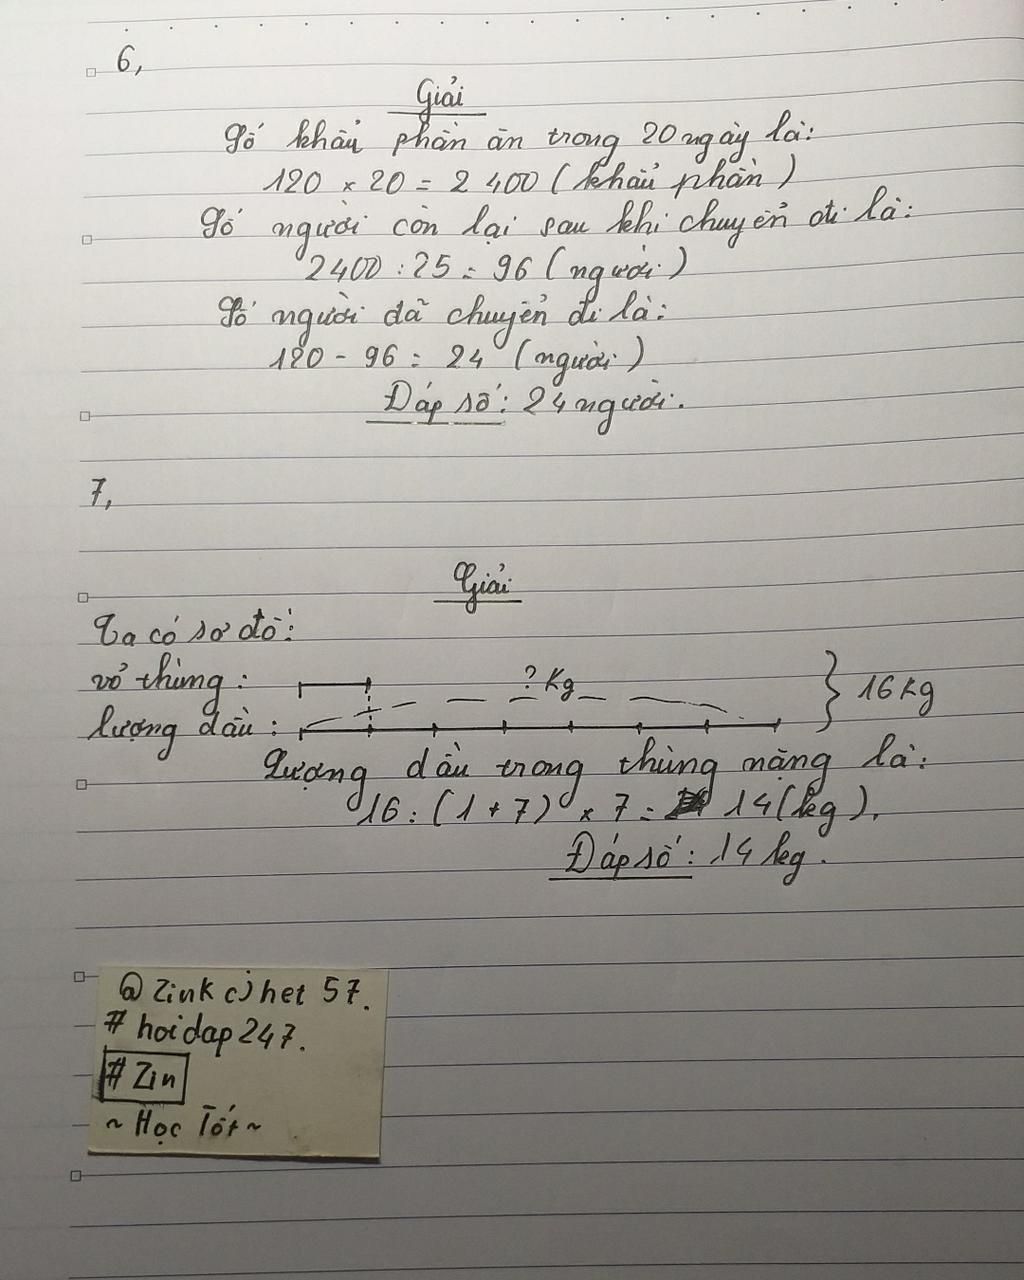 6,
Giải
Số khẩu phần ăn trong 20 ngày là:
120 × 20 = 2 400 (khẩu phần)
Số người còn lại sau khi chuyển đi là:
2400 : 25 = 96 (người)
Số người đã chuyển đi là:
120 - 96 = 24 (người)
Đáp số: 24 người.
7,
Giải
Ta có sơ đồ:
vỏ thùng:
? Kg
16 Kg
lượng dầu:
Lượng dầu trong thùng nặng là:
16 : (1 + 7) × 7 = 14 (kg).
Đáp số: 14 kg.
@ Zink chet 57.
# hoidap247.
# Zin
~ Học Tốt ~